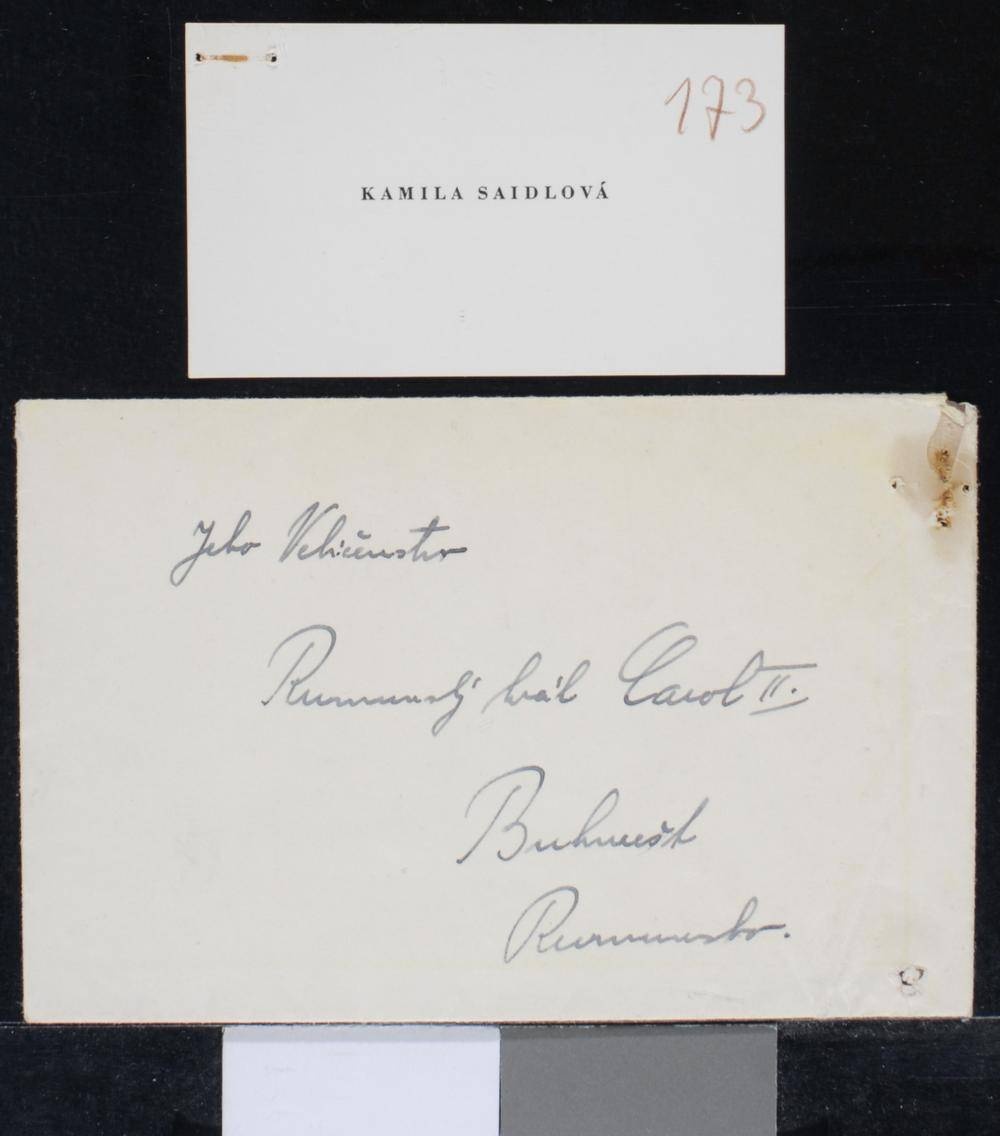 173
KAMILA SAIDLOVÁ
Jeho Veličenstvo
Rumunský král Carol II.
Bukurešt
Rumunsko.